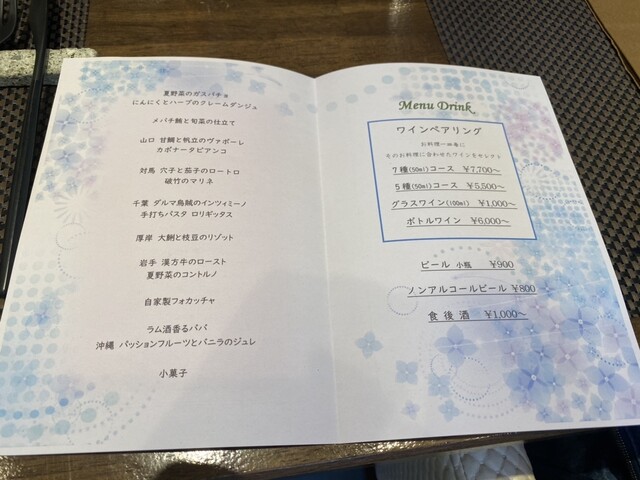 夏野菜のガスパチョ
にんにくとハーブのクレームダンジュ
メバチ鮪と旬菜の仕立て
山口 甘鯛と帆立のヴァポーレ
カポナータビアンコ
対馬 穴子と茄子のロートロ
破竹のマリネ
千葉 ダルマ烏賊のインツィミーノ
手打ちパスタ ロリギッタス
厚岸 大蜊と枝豆のリゾット
岩手 漢方牛のロースト
夏野菜のコントルノ
自家製フォカッチャ
ラム酒香るババ
沖縄 パッションフルーツとバニラのジュレ
小菓子
Menu Drink
ワインペアリング
お料理一皿毎に
そのお料理に合わせたワインをセレクト
7種(50ml)コース ¥7,700~
5種(50ml)コース ¥5,500~
グラスワイン(100ml) ¥1,000~
ボトルワイン ¥6,000~
ビール 小瓶 ¥900
ノンアルコールビール ¥800
食後酒 ¥1,000~